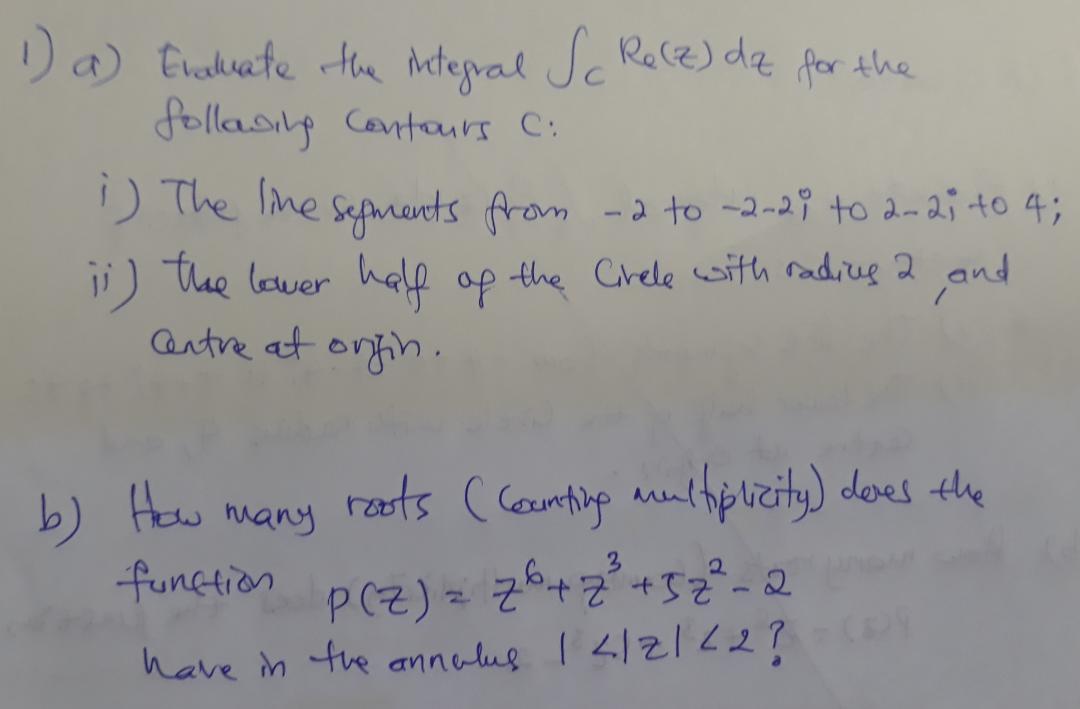 1) a) Evaluate the integral ∫c Re(z) dz for the
following Contours C:
i) The line segments from -2 to -2-2i to 2-2i to 4;
ii) The lower half of the Circle with radius 2, and
Centre at origin.
b) How many roots (Counting multiplicity) does the
function p(z) = z⁶ + z³ + 5z² - 2
have in the annulus 1 <|z| < 2?